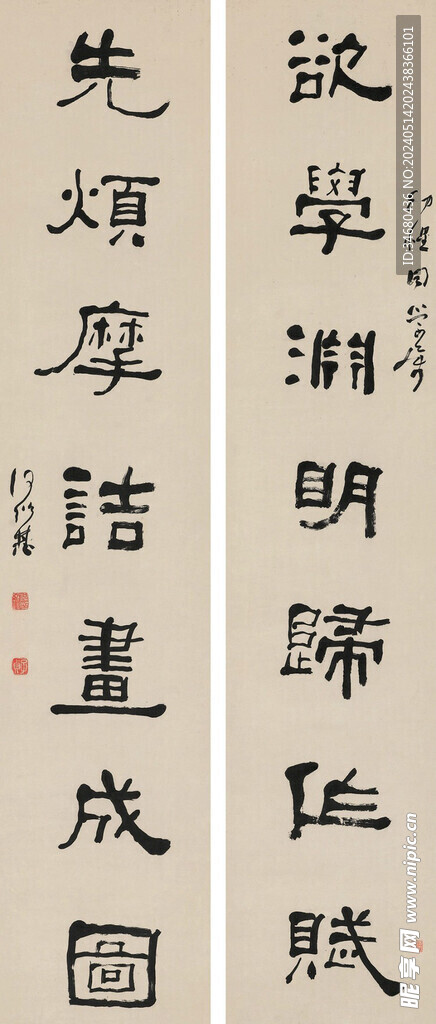 欲學淵明歸作賦
先煩摩詰畫成圖
何紹基
ID:34680436,NO:20240514202438366101
昵享网 www.nipic.cn